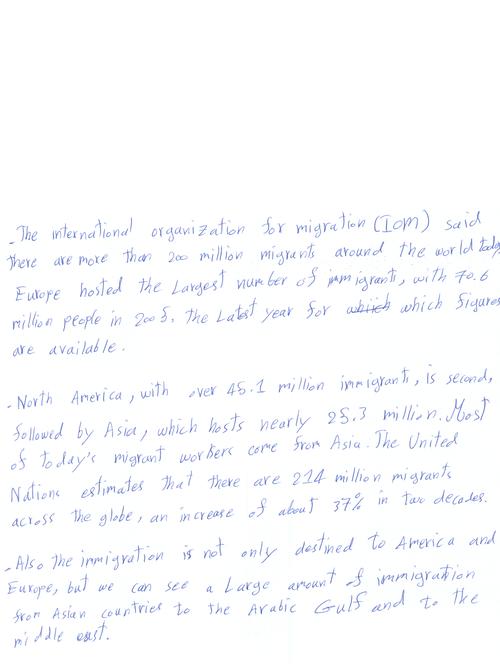 - The international organization for migration (IOM) said
there are more than 200 million migrants around the world today
Europe hosted the Largest number of immigrants, with 70.6
million people in 2005. the Latest year for whiich which figures
are available.
- North America, with over 45.1 million immigrants, is second,
followed by Asia, which hosts nearly 25.3 million. Most
of today's migrant workers come from Asia. The United
Nations estimates that there are 214 million migrants
across the globe, an increase of about 37% in two decades.
- Also the immigration is not only destined to America and
Europe, but we can see a Large amount of immigration
from Asian countries to the Arabic Gulf and to the
middle east.